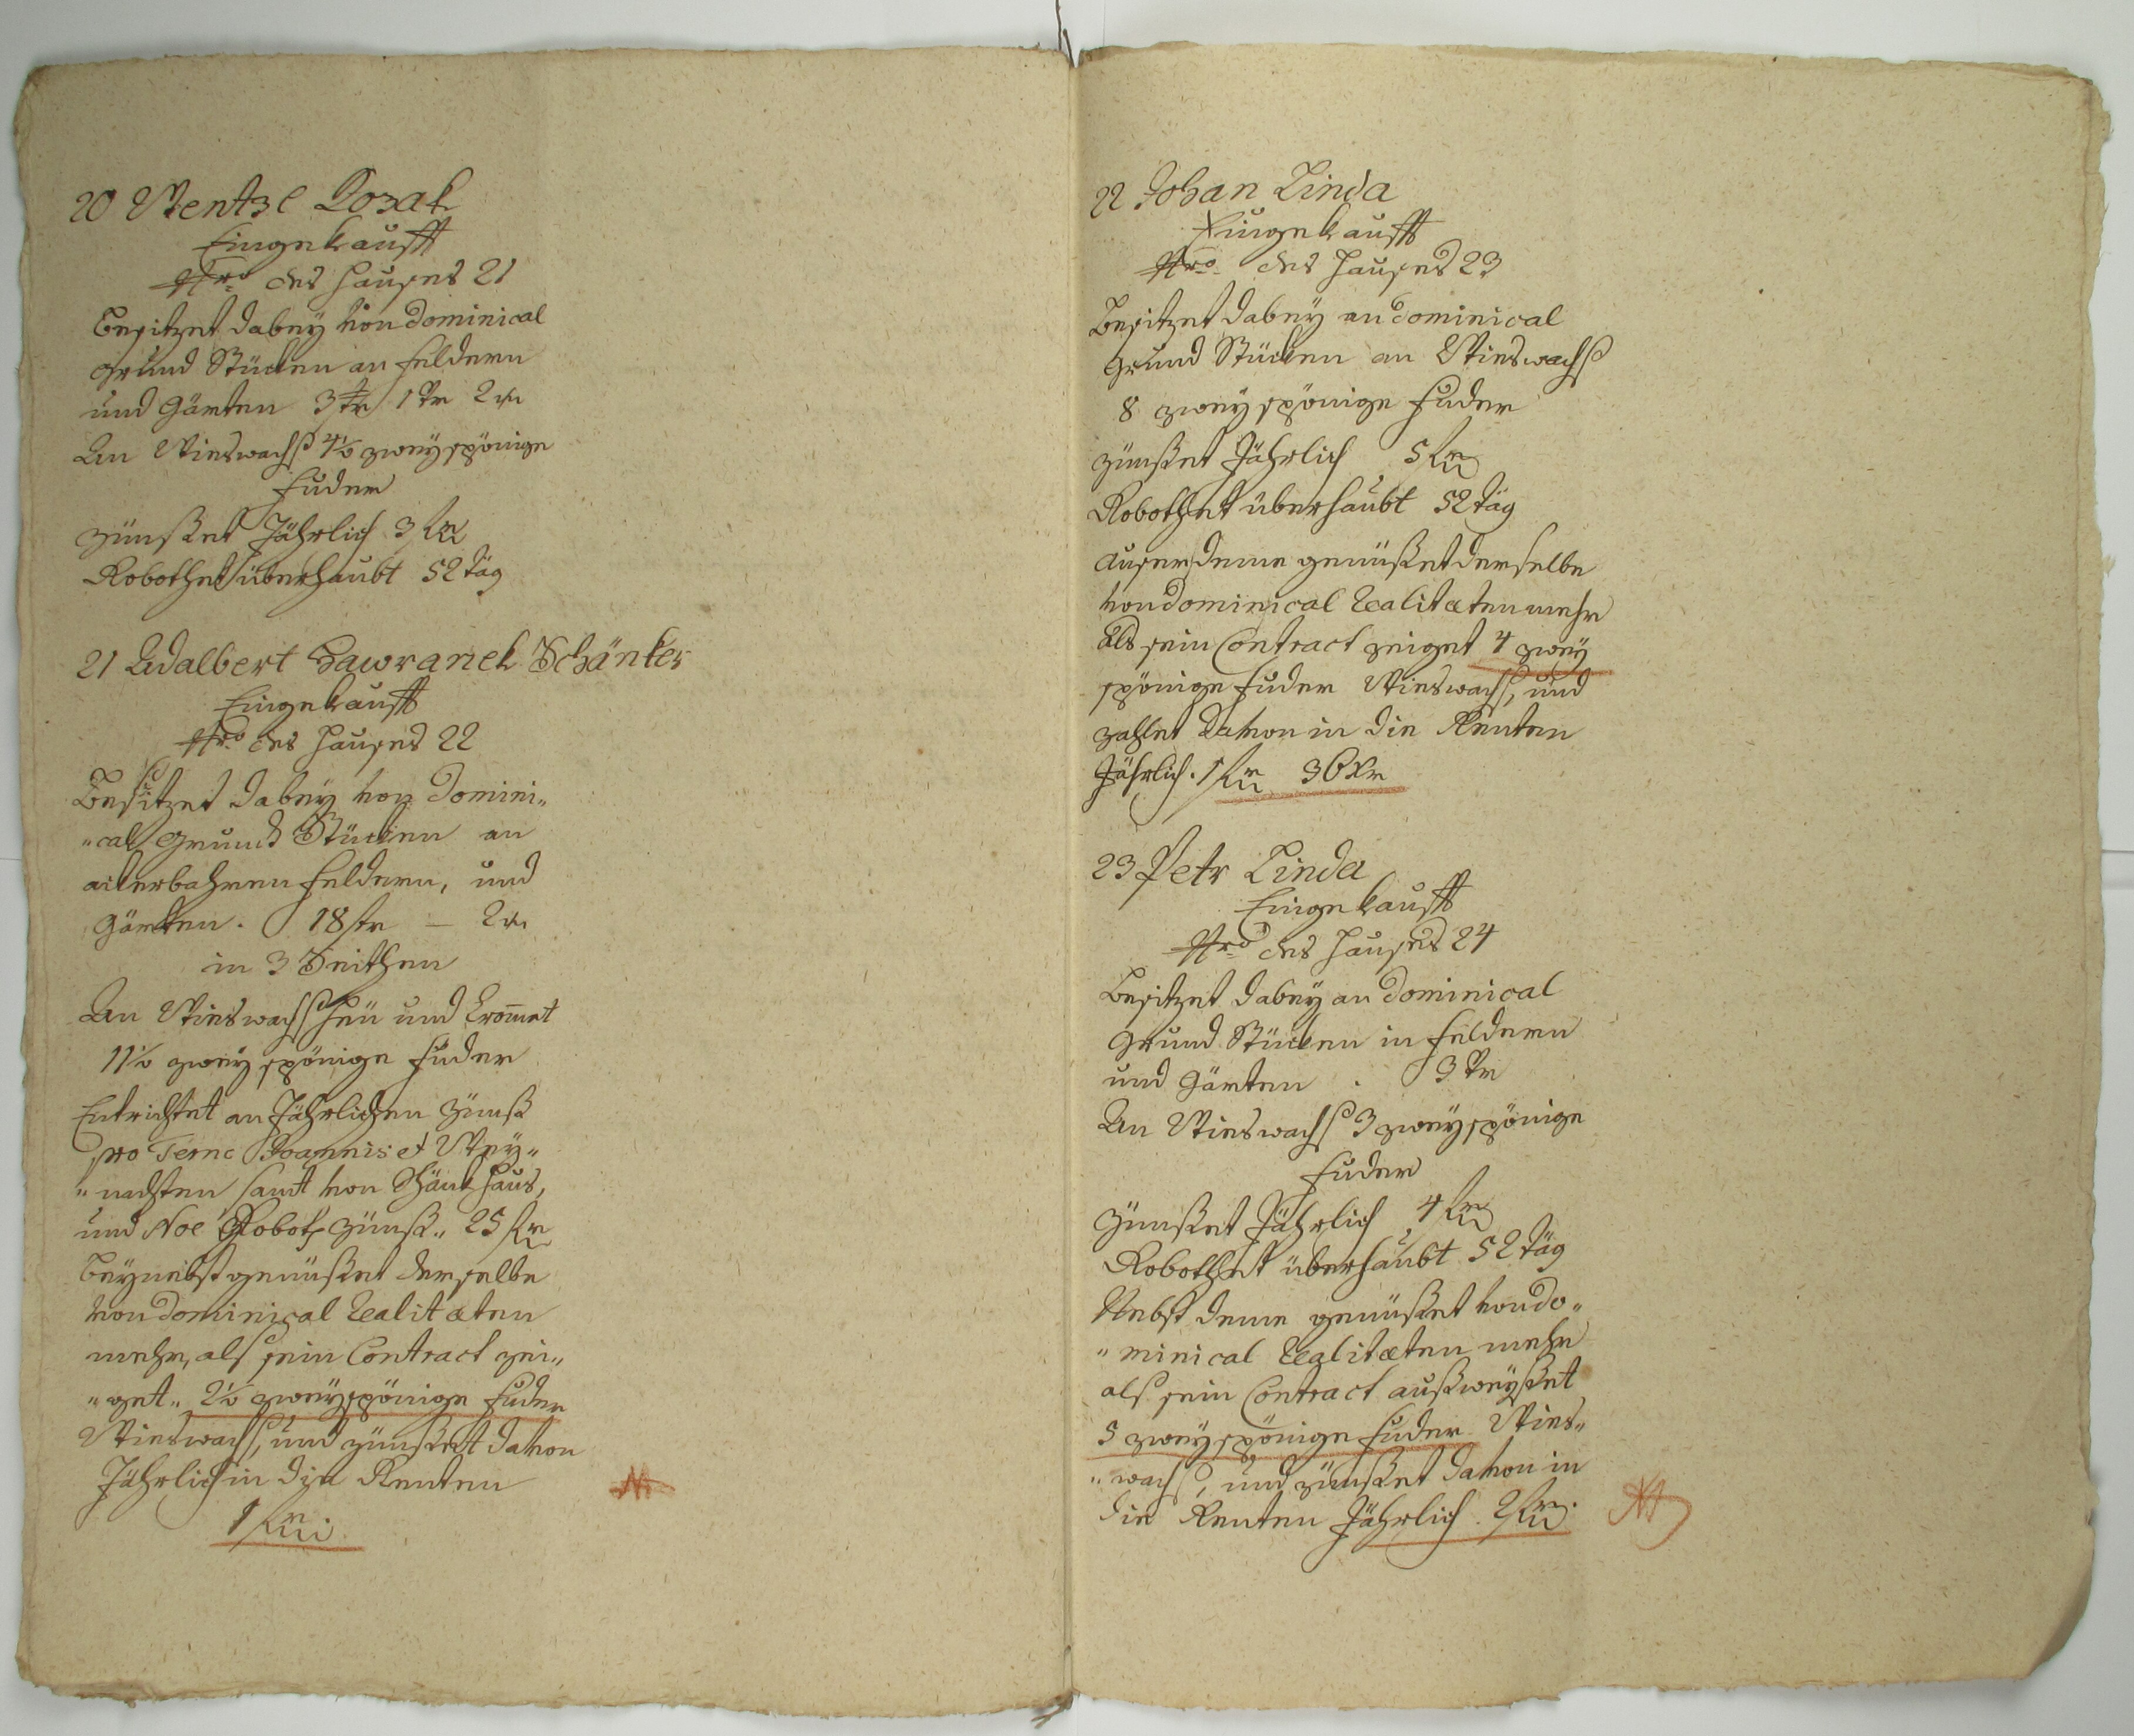 20 Wentzl Kozak
Eingekaufft
Nro des Hauses 21
Besitzet dabey von dominical
grund Stücken an Feldern
und Gärten 3 str 1 Vr 2
An Wieswachß 4½ zweyspönige
Fuder
zünßet Jährlich 3 fr
Robothet überhaubt 52 täg
21 Adalbert Hawranek Schänker
Eingekaufft
Nro des Hauses 22
Besitzet dabey von Domini„
„cal Grund Stücken an
ackerbahren Feldern, und
Gärten. 18 str — 2
in 3 Seithen
An Wieswachß Heü und Crommet
11½ zweyspönige Fuder
Entrichtet an Jährlichen Zünß
pro Termo Joannis et Wey„
„nachten samt von Schänkhaus,
und Noe Roboth Zünß„ 25 fr
Beynebst genüßet derselbe
von dominical Realitæten
mehr, als sein Contract zei„
„get„ 2½ zweyspönige Fuder
Wieswachß, und zünßet davon
Jährlich in die Renten
1 fr
22 Johan Linda
Eingekaufft
Nro des Hauses 23
Besitzet dabey an dominical
Grund Stücken an Wieswachß
8 zweyspönige Fuder
zünßet Jährlich 5 fr
Robothet überhaubt 52 täg
auser deme genüßet derselbe
von dominical Realitæten mehr
als sein Contract zeiget 4 zwey
spönige Fuder Wieswachß, und
zahlet davon in die Renten
Jährlich. 1 fr 36 Xr
23 Petr Linda
Eingekaufft
Nro des Hauses 24
Besitzet dabey an dominical
Grund Stücken in Feldern
und Gärten . 3 Vr
An Wieswachß 3 zweyspönige
Fuder
Zünßet Jährlich 4 fr
Robothet überhaubt 52 täg
Nebst deme genüßet von do„
„minical Realitæten mehr
als sein Contract außweyßet
5 zweyspönige Fuder Wies„
„wachß, und zünßet davon in
die Renten Jährlich. 2 fr.